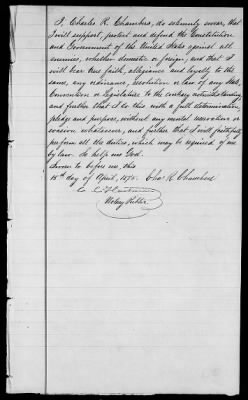 I, Charles R. Chambers, do solemnly swear, that
I will support, protect and defend the Constitution
and Government of the United States against all
enemies, whether domestic or foreign, and that I
will bear true faith, allegiance and loyalty to the
same, any ordinance, resolution or law of any State,
Convention or Legislature to the contrary notwithstanding
and further that I do this with a full determination,
pledge and purpose, without any mental reservation or
evasion whatsoever, and further that I will faithfully
perform all the duties, which may be required of me
by law. So help me God.
Sworn to before me, this
15th day of April, 1875. Chas. R. Chambers
Notary Public.